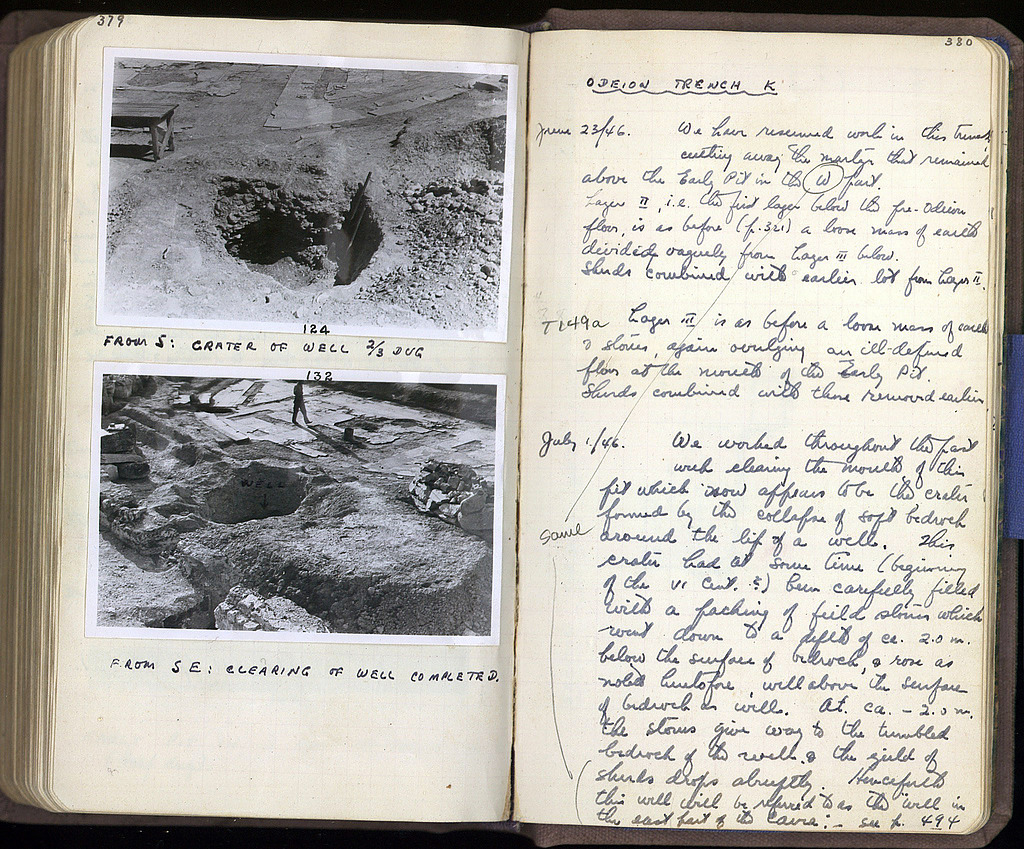 379
124
FROM S: CRATER OF WELL 2/3 DUG
132
WELL
FROM SE: CLEARING OF WELL COMPLETED.
380
ODEION TRENCH K
June 23/46. We have resumed work in this trench
cutting away the martyr that remained
above the Early Pit in the W part.
Layer II, i.e. the first layer below the pre-Odeion
floor, is as before (p. 321) a loose mass of earth
divided vaguely from Layer III below.
Sherds combined with earlier lot from Layer II.
T149a Layer III is as before a loose mass of earth
& stones, again overlying an ill-defined
floor at the mouth of the Early Pit.
Sherds combined with those removed earlier.
July 1/46. We worked throughout the past
week clearing the mouth of this
pit which now appears to be the crater
formed by the collapse of soft bedrock
Same around the lip of a well. This
crater had at some time (beginning
of the VI cent. ?) been carefully filled
with a packing of field stones which
went down to a depth of ca. 2.0 m.
below the surface of bedrock, & rose as
noted heretofore, well above the surface
of bedrock as well. At ca. - 2.0 m.
the stones give way to the tumbled
bedrock of the well & the yield of
sherds drops abruptly. Henceforth
this well will be referred to as the "well in
the east part of the Cavea". - see p. 494